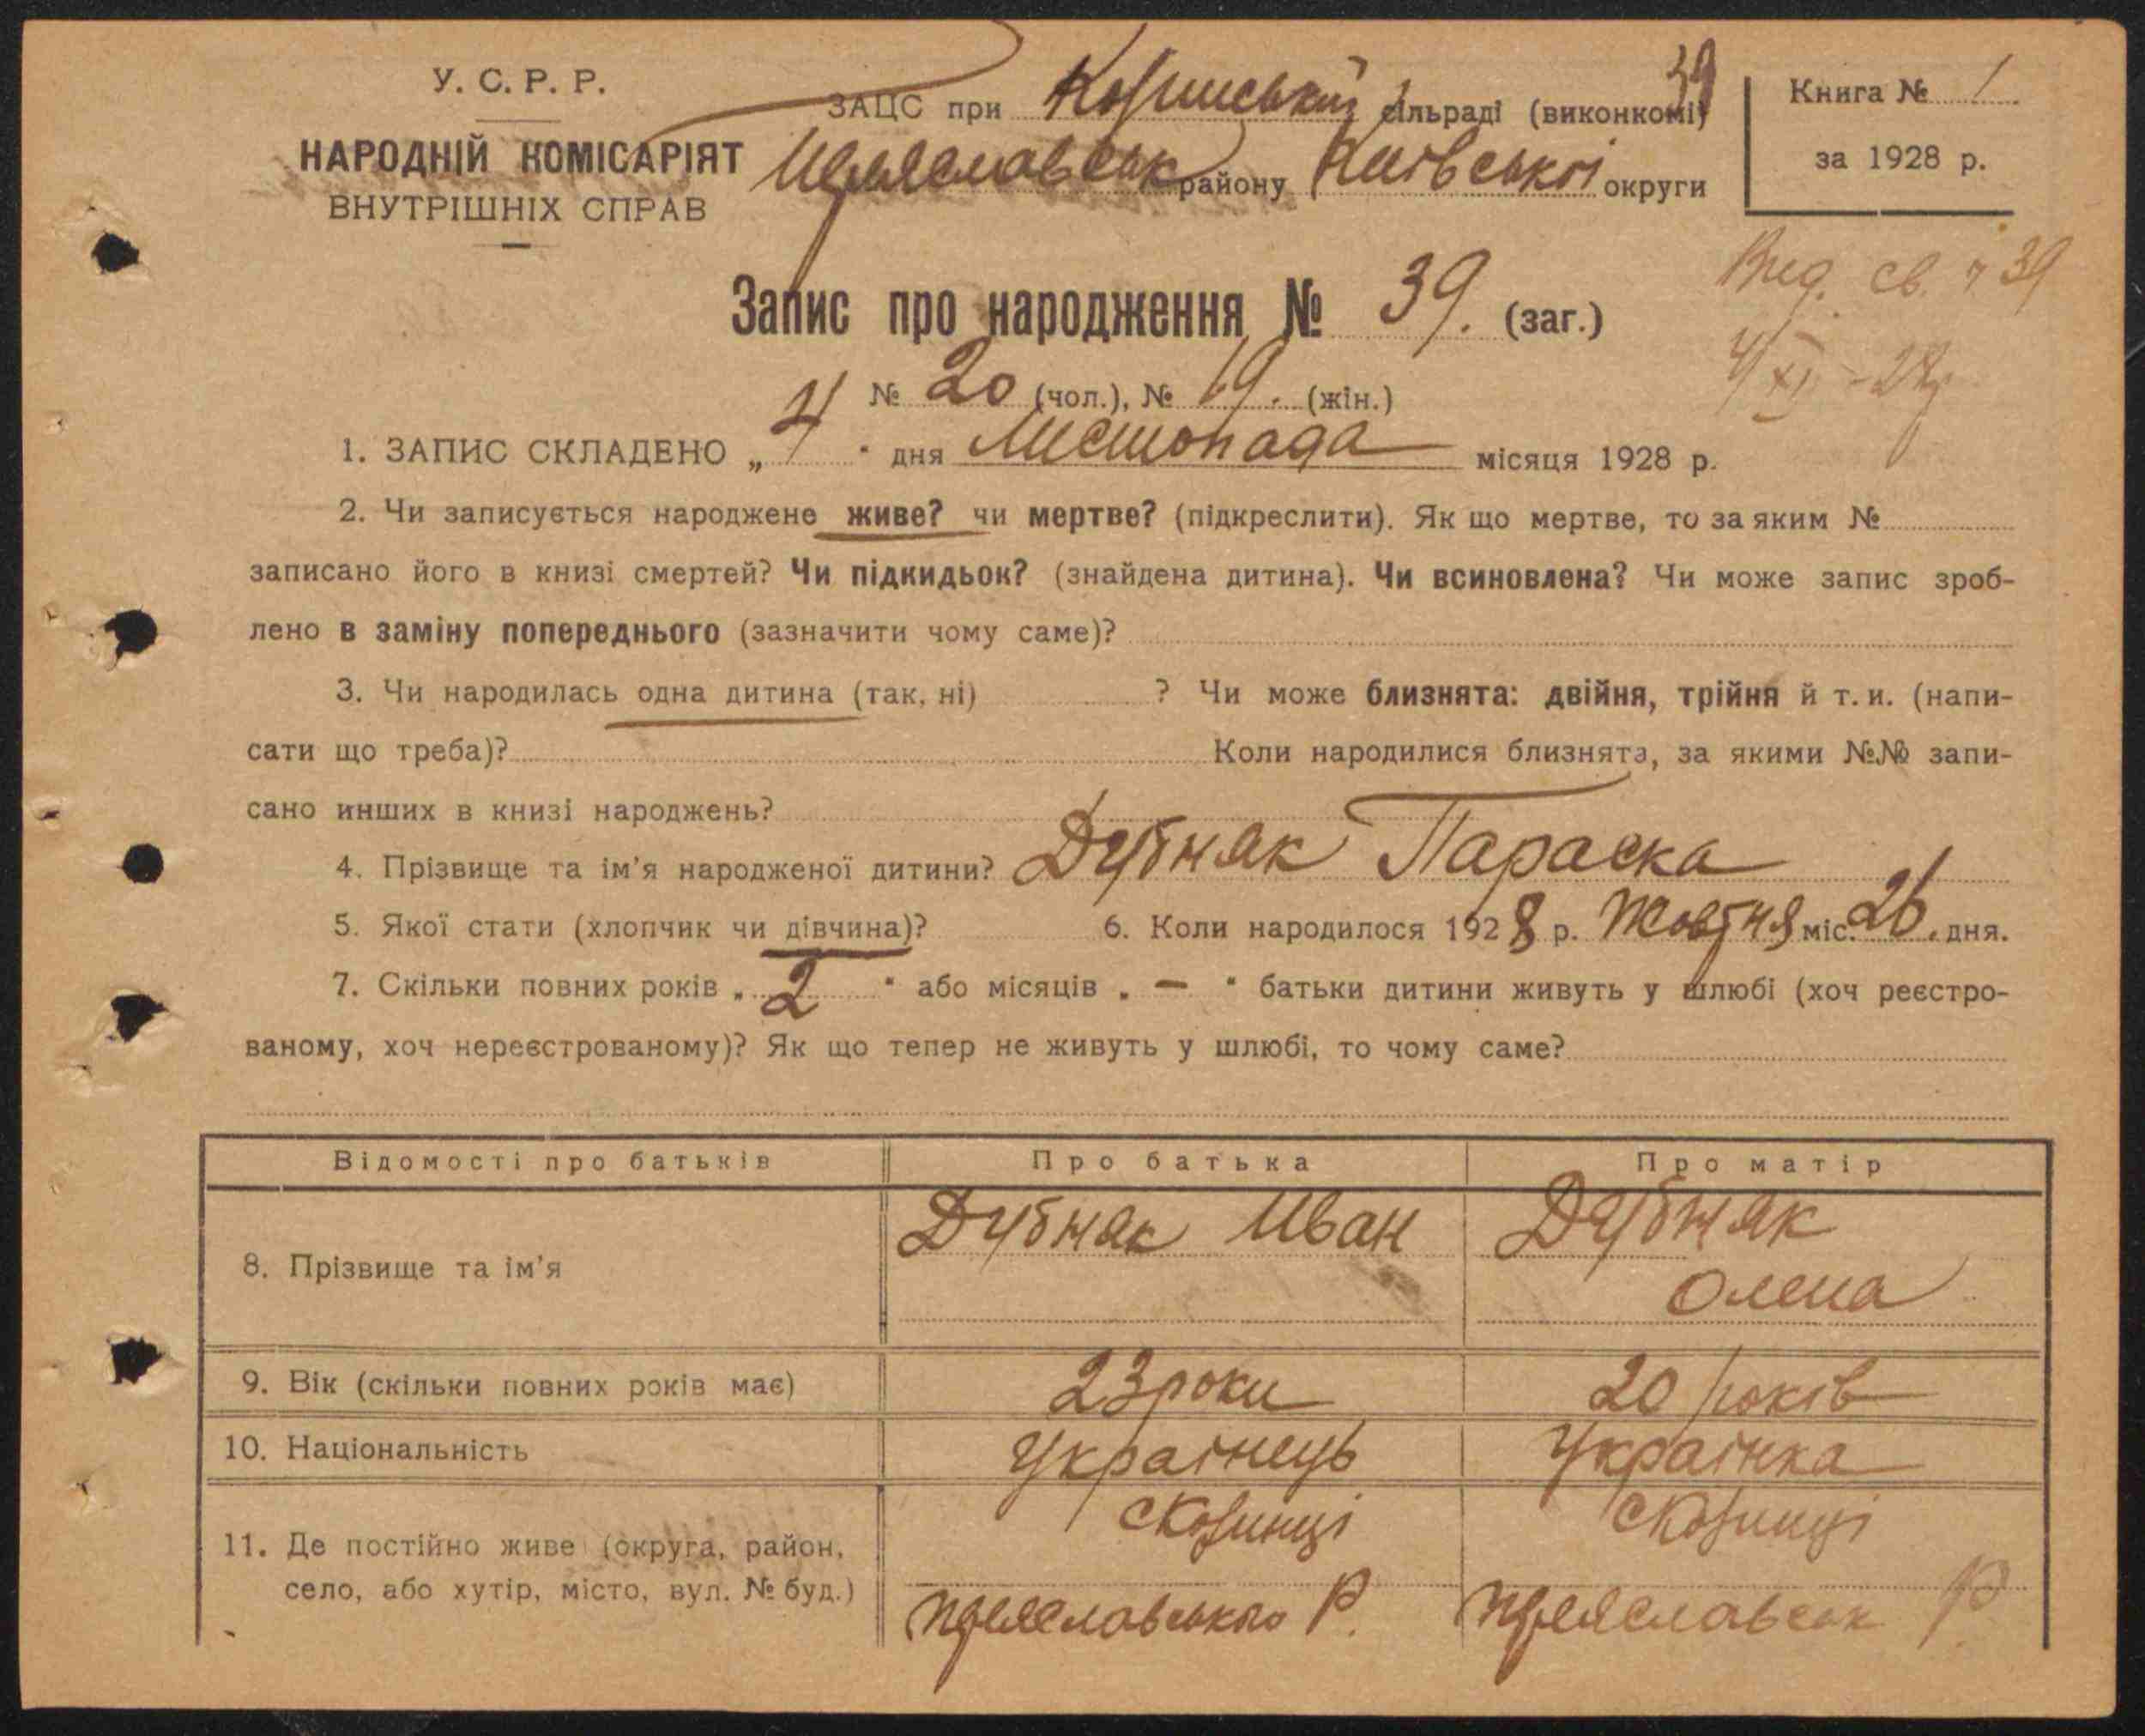 У. С. Р. Р.
НАРОДНІЙ КОМІСАРІЯТ
ВНУТРІШНІХ СПРАВ
39
ЗАЦС при сільраді (виконкомі)
Переяславськ району Київської округи
Книга № 1
за 1928 р.
Запис про народження № 39. (заг.)
Вид. св. 39
4/XI-28р
№ 20 (чол.), № 19. (жін.)
1. ЗАПИС СКЛАДЕНО „ 4 " дня Листопада місяця 1928 р.
2. Чи записується народжене живе? чи мертве? (підкреслити). Як що мертве, то за яким №
записано його в книзі смертей? Чи підкидьок? (знайдена дитина). Чи всиновлена? Чи може запис зроб-
лено в заміну попереднього (зазначити чому саме)?
3. Чи народилась одна дитина (так, ні) ? Чи може близнята: двійня, трійня й т. и. (напи-
сати що треба)? Коли народилися близнята, за якими №№ запи-
сано инших в книзі народжень?
4. Прізвище та ім'я народженої дитини? Дубняк Параска
5. Якої стати (хлопчик чи дівчина)? 6. Коли народилося 1928 р. Жовтня міс. 26. дня.
7. Скільки повних років „ 2 " або місяців „ — " батьки дитини живуть у шлюбі (хоч реєстро-
ваному, хоч нереєстрованому)? Як що тепер не живуть у шлюбі, то чому саме?
Відомості про батьків Про батька Про матір
8. Прізвище та ім'я Дубняк Иван Дубняк Олена
9. Вік (скільки повних років має) 23 роки 20 років
10. Національність Українець Українка
11. Де постійно живе (округа, район, село, або хутір, місто, вул. № буд.) с Козинці Переяславського Р. с Козинці Переяславськ Р.